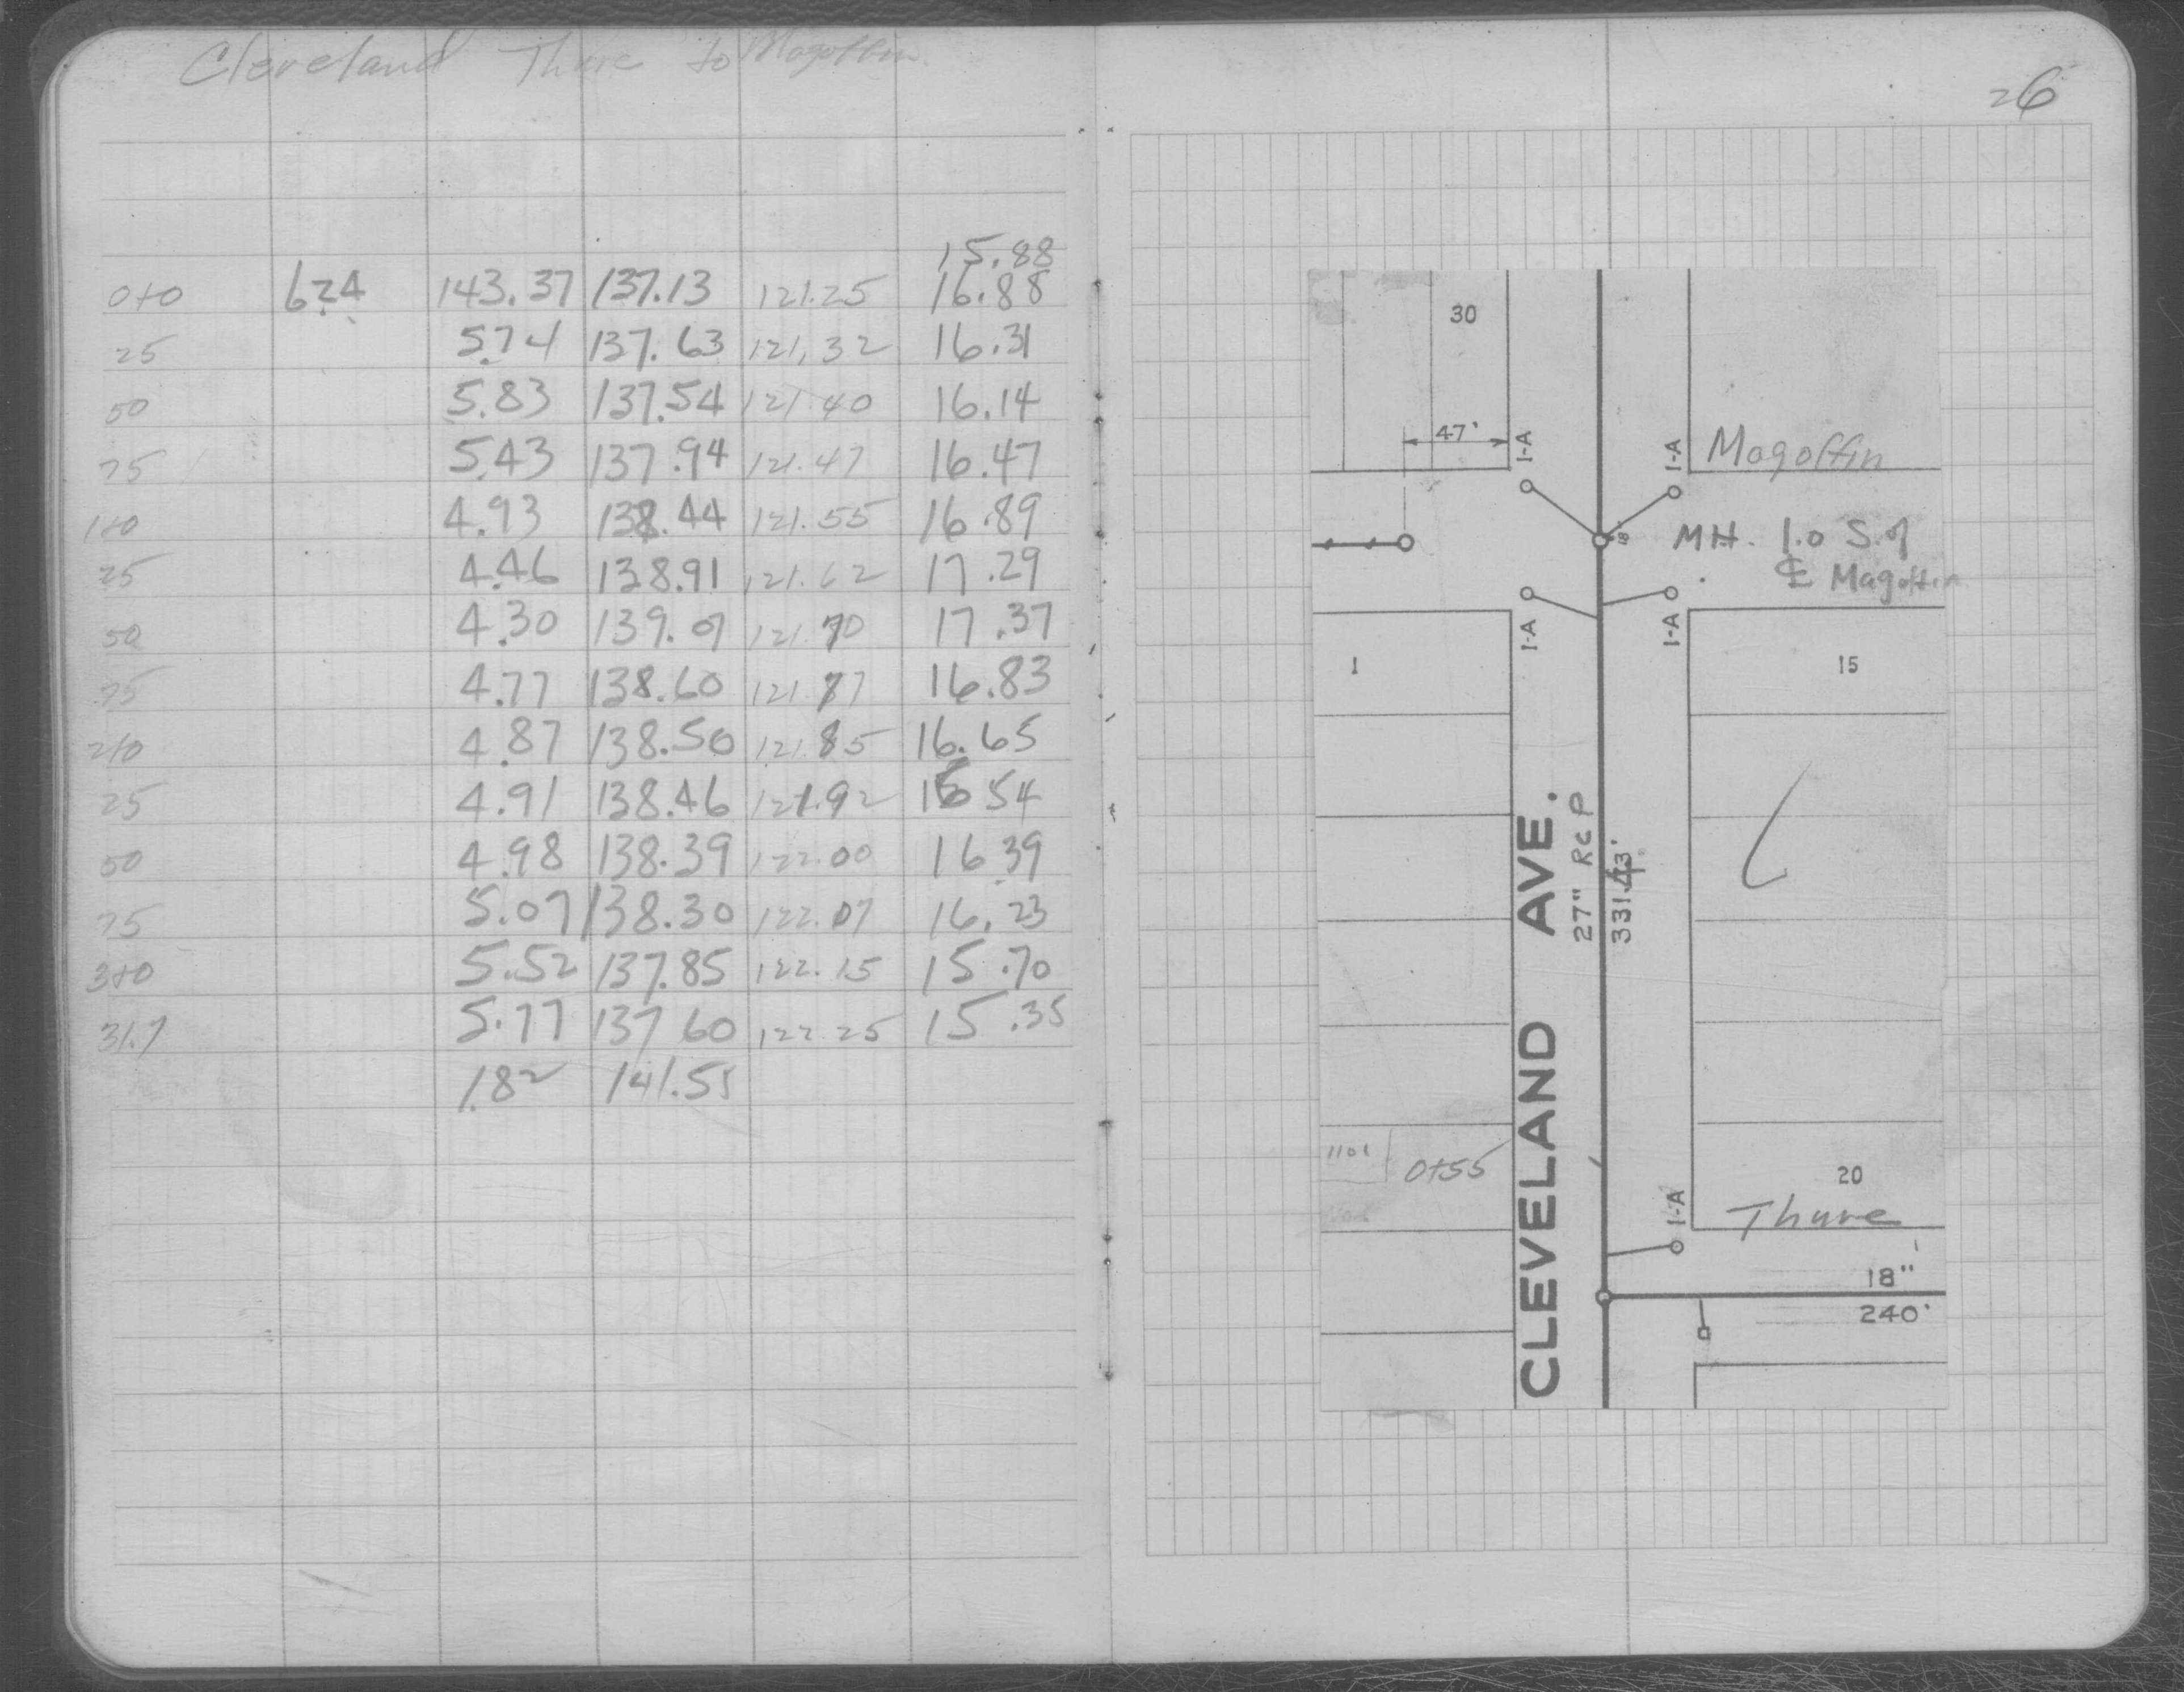 Cleveland Thure to Magoffin
15.88
0+0 6.24 143.37 137.13 121.25 16.88
25 5.74 137.63 121.32 16.31
50 5.83 137.54 121.40 16.14
75 5.43 137.94 121.47 16.47
1+0 4.93 138.44 121.55 16.89
25 4.46 138.91 121.62 17.29
50 4.30 139.07 121.70 17.37
75 4.77 138.60 121.77 16.83
2+0 4.87 138.50 121.85 16.65
25 4.91 138.46 121.92 16 54
50 4.98 138.39 122.00 16 39
75 5.07 138.30 122.07 16.23
3+0 5.52 137.85 122.15 15.70
31.7 5.77 137 60 122 25 15.35
1.82 141.55
26
30
47'
1-A
1-A
Magoffin
18"
MH. 1.0 S. of
℄ Magoffin
1-A
1-A
1
15
CLEVELAND AVE.
27" RCP
331.43'
1101
0+55
20
1-A
Thure
18"
240'